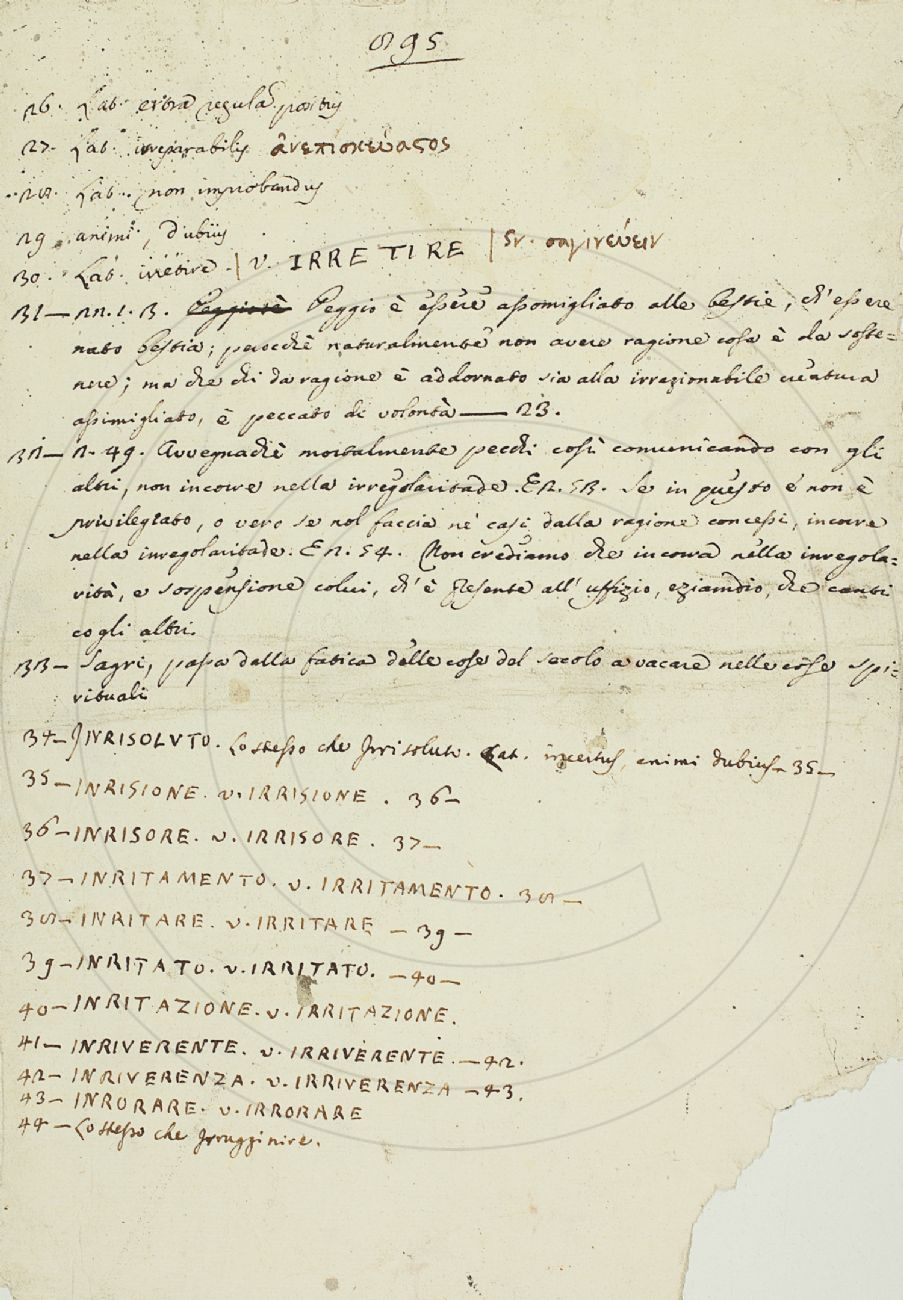 895
26. Lat. extra regulã positus
27. Lat. irreparabilis ἀνεπισκεύαςος
28. Lat. non improbandus
29 animi, dubius
30. Lat. irretire. | v. IRRETIRE | Gr. σαγινεύειν
31 — nn. 1. 3. Peggio è Peggio è essere assomigliato alle bestie, ch'essere
nato bestia; perocchè naturalmente non avere ragione cosa è da soste=
nere; ma che chi da ragione è addornato sia alla irrazionabile creatura
assimigliato, è peccato di volontà — 23.
32 — 2. 49. Avvegnachè mortalmente pecchi così comunicando con gli
altri, non incorre nella irregolaritade. E 2. 53. Se in questo e' non è
privilegiato, o vero se nol faccia ne' casi dalla ragione concessi, incorre
nella inregolaritade. E 2. 54. Non crediamo che incorra nella inregola=
rità, e sospensione colui, ch' è presente all' uffizio, eziamdio, che canti
co gli altri.
33 — Sagri, passa dalla fatica delle cose del secolo a vacare nelle cose spi=
rituali
34 — INRISOLUTO. Lo stesso che Irrisoluto. Lat. incertus, animi dubius — 35 —
35 — INRISIONE. v. IRRISIONE. 36 —
36 — INRISORE. v. IRRISORE. 37 —
37 — INRITAMENTO. v. IRRITAMENTO. 38 —
38 — INRITARE. v. IRRITARE — 39 —
39 — INRITATO. v. IRRITATO. — 40 —
40 — INRITAZIONE. v. IRRITAZIONE.
41 — INRIVERENTE. v. IRRIVERENTE. — 42.
42 — INRIVERENZA. v. IRRIVERENZA — 43.
43 — INRORARE. v. IRRORARE
44 — Lo stesso che Irrugginire.